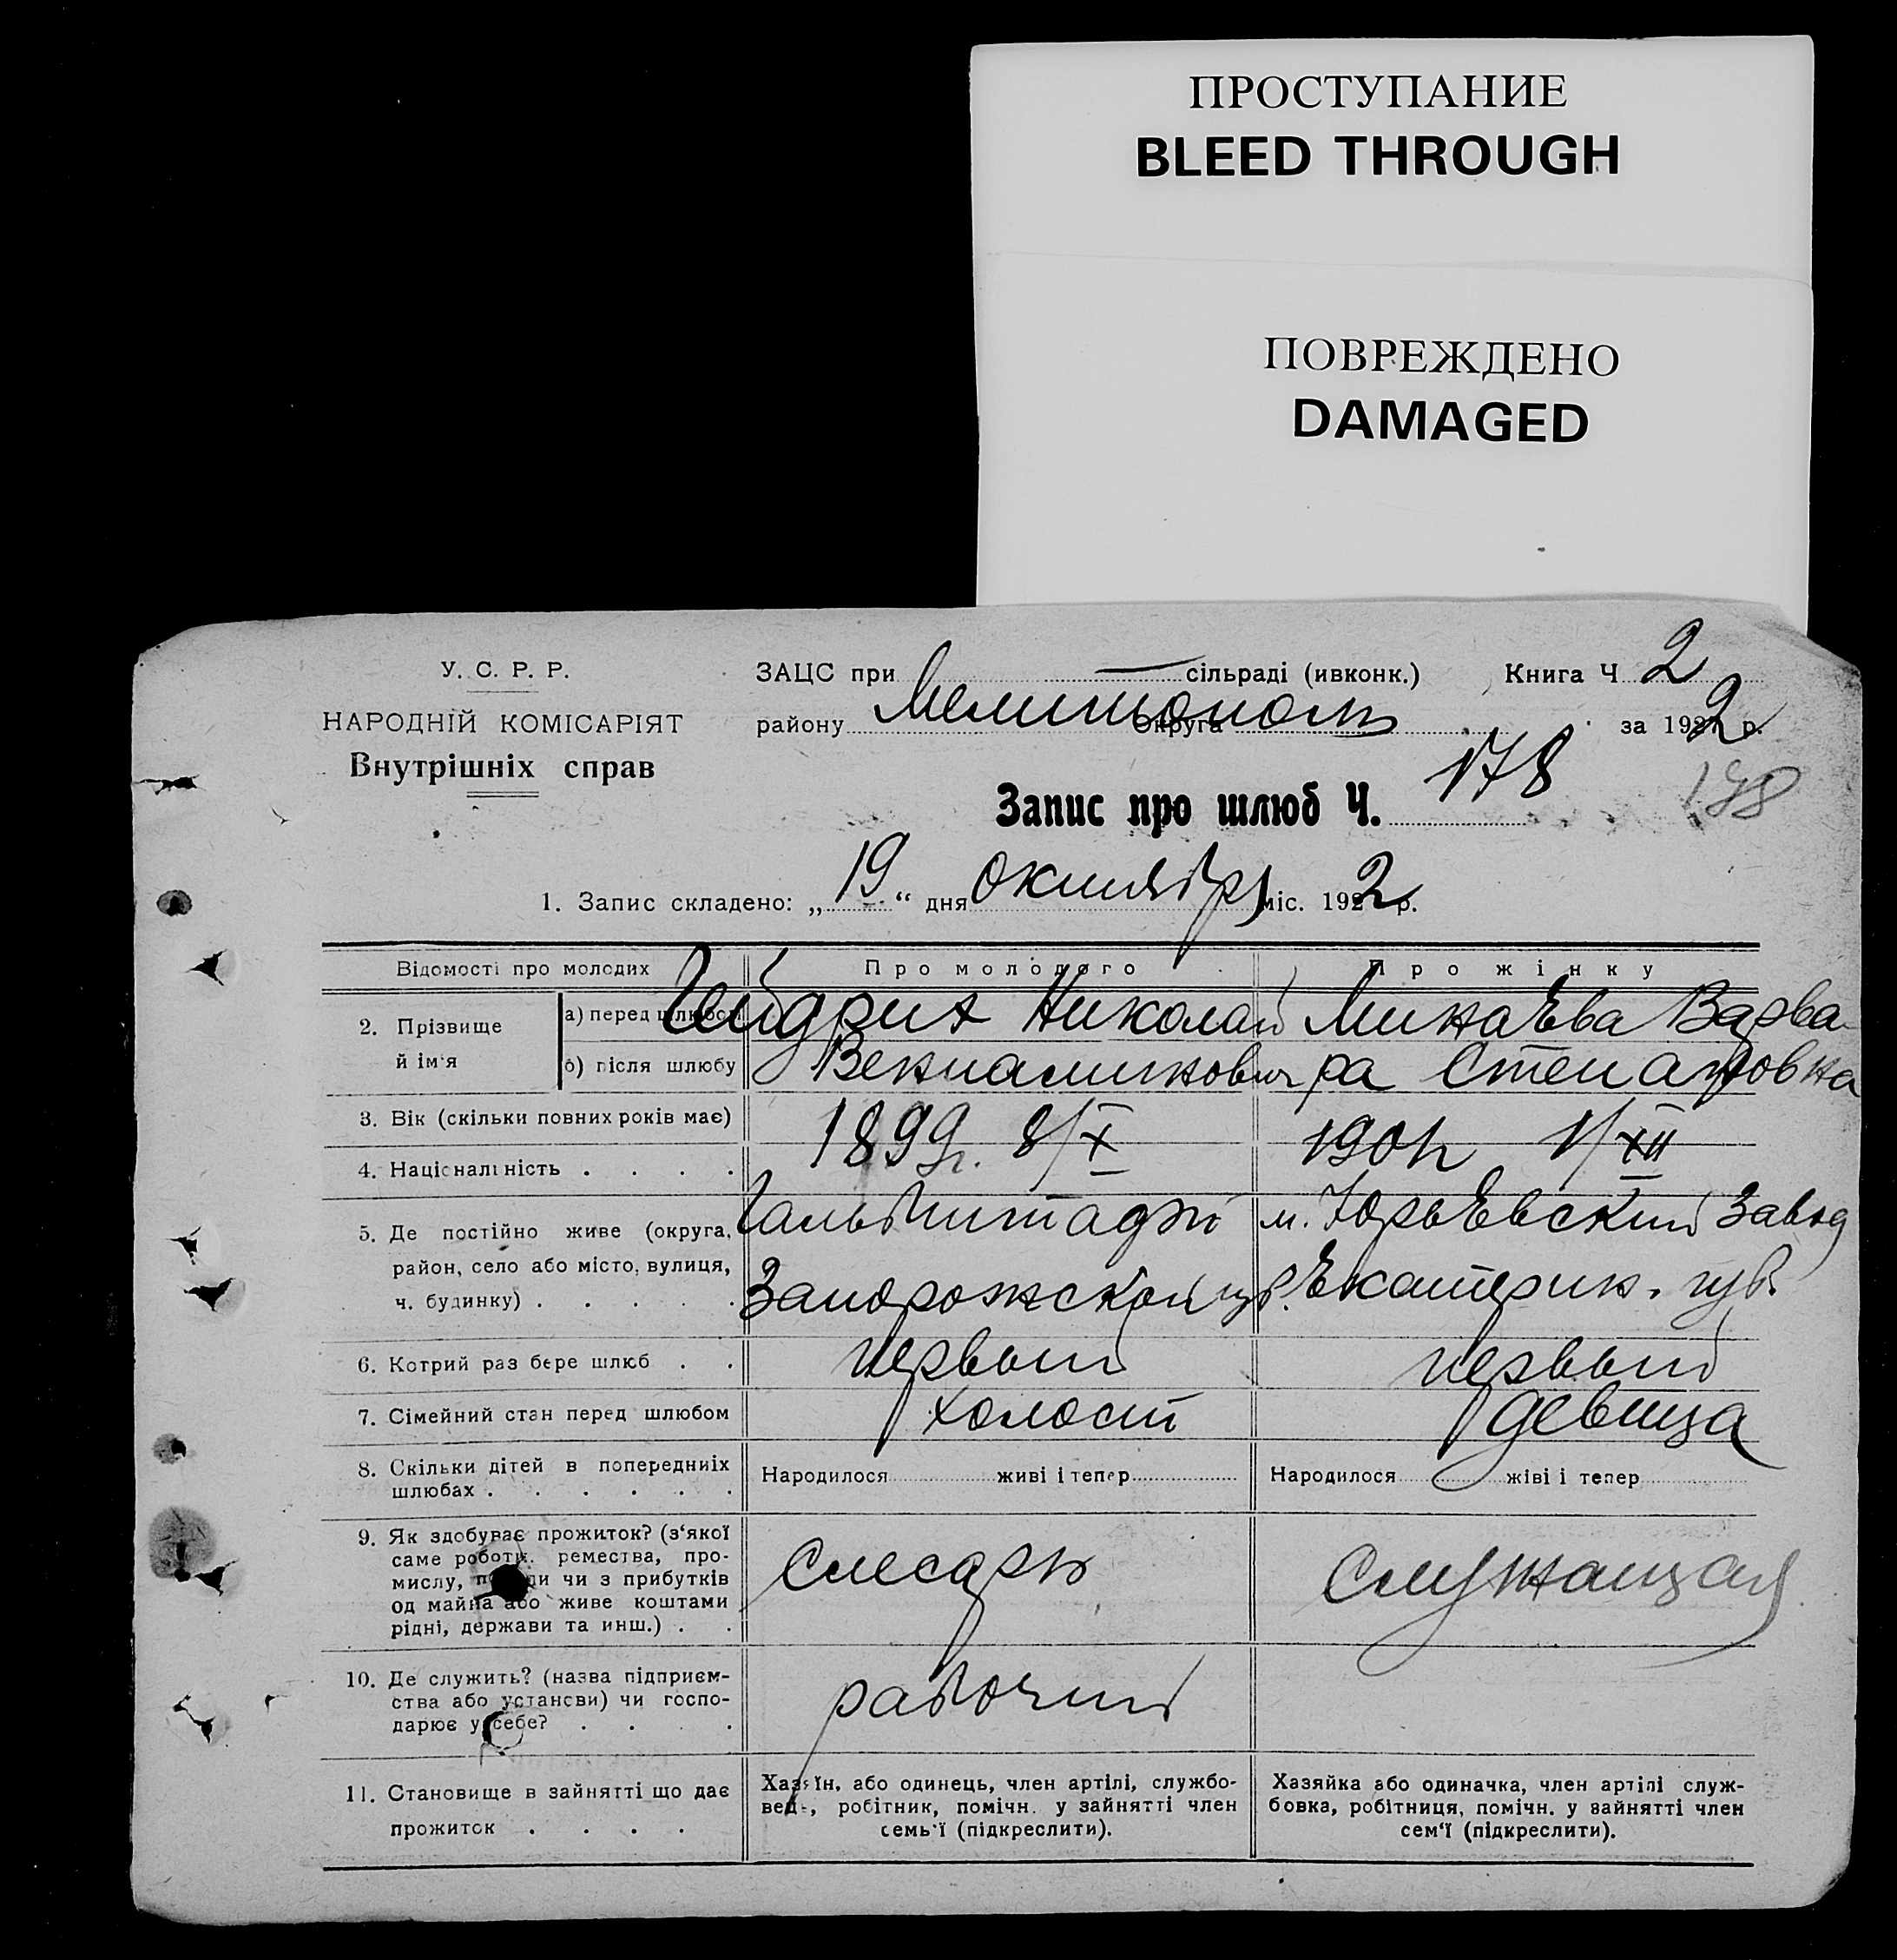 ПРОСТУПАНИЕ
BLEED THROUGH
ПОВРЕЖДЕНО
DAMAGED
У. С. Р. Р.
НАРОДНІЙ КОМІСАРІЯТ
Внутрішніх справ
ЗАЦС при сільраді (ивконк.) Книга Ч 2
району Мелитополь Округа за 1922 р.
Запис про шлюб Ч. 178
178
1. Запис складено: „19“ дня октября міс. 1922 р.
Відомості про молодих Про молодого Про жінку
2. Прізвище й ім'я а) перед шлюбом Гейдрих Николай Минаева Варва-
б) після шлюбу Вениаминович ра Степановна
3. Вік (скільки повних років має) 1899 г. 8/X 1901 г. 1/XII
4. Національність . . . .
5. Де постійно живе (округа, Гальбштадт м. Юрьевский Завод
район, село або місто, вулиця, Запорожской губ. Екатерин. губ.
ч. будинку) . . . . .
6. Котрий раз бере шлюб . . первый первый
7. Сімейний стан перед шлюбом холост девица
8. Скільки дітей в попередниіх Народилося живі і тепер Народилося жіві і тепер
шлюбах . . . . . .
9. Як здобуває прожиток? (з'якої
саме роботи. ремества, про- слесарь служащая
мислу, чи з прибутків
од майна або живе коштами
рідні, держави та инш.) . .
10. Де служить? (назва підприєм-
ства або установи) чи госпо- рабочий
дарює у себе? . . . .
11. Становище в зайнятті що дає Хазяїн, або одинець, член артілі, службо- Хазяйка або одиначка, член артілі служ-
прожиток . . . . вед-, робітник, помічн. у зайнятті член бовка, робітниця, помічн. у зайнятті член
семь'ї (підкреслити). сем'ї (підкреслити).